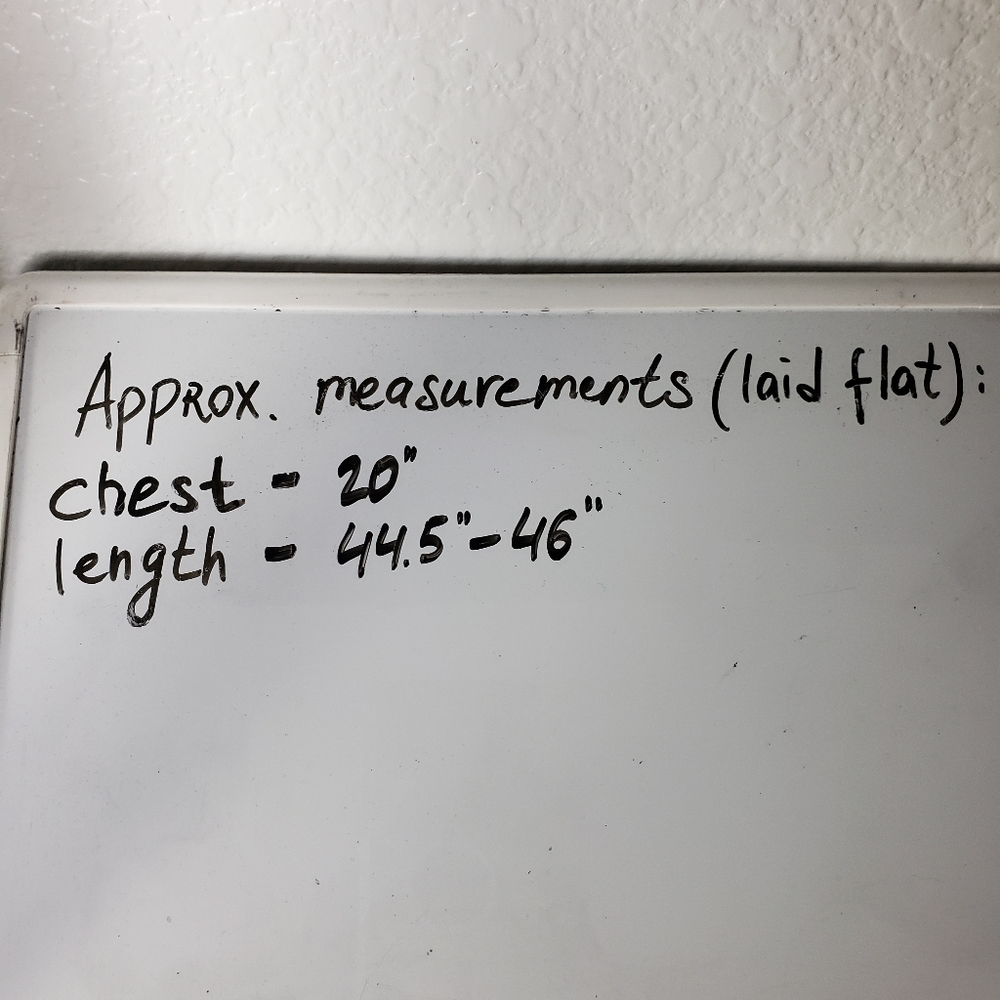 Approx. measurements (laid flat):
chest - 20"
length - 44.5"-46"